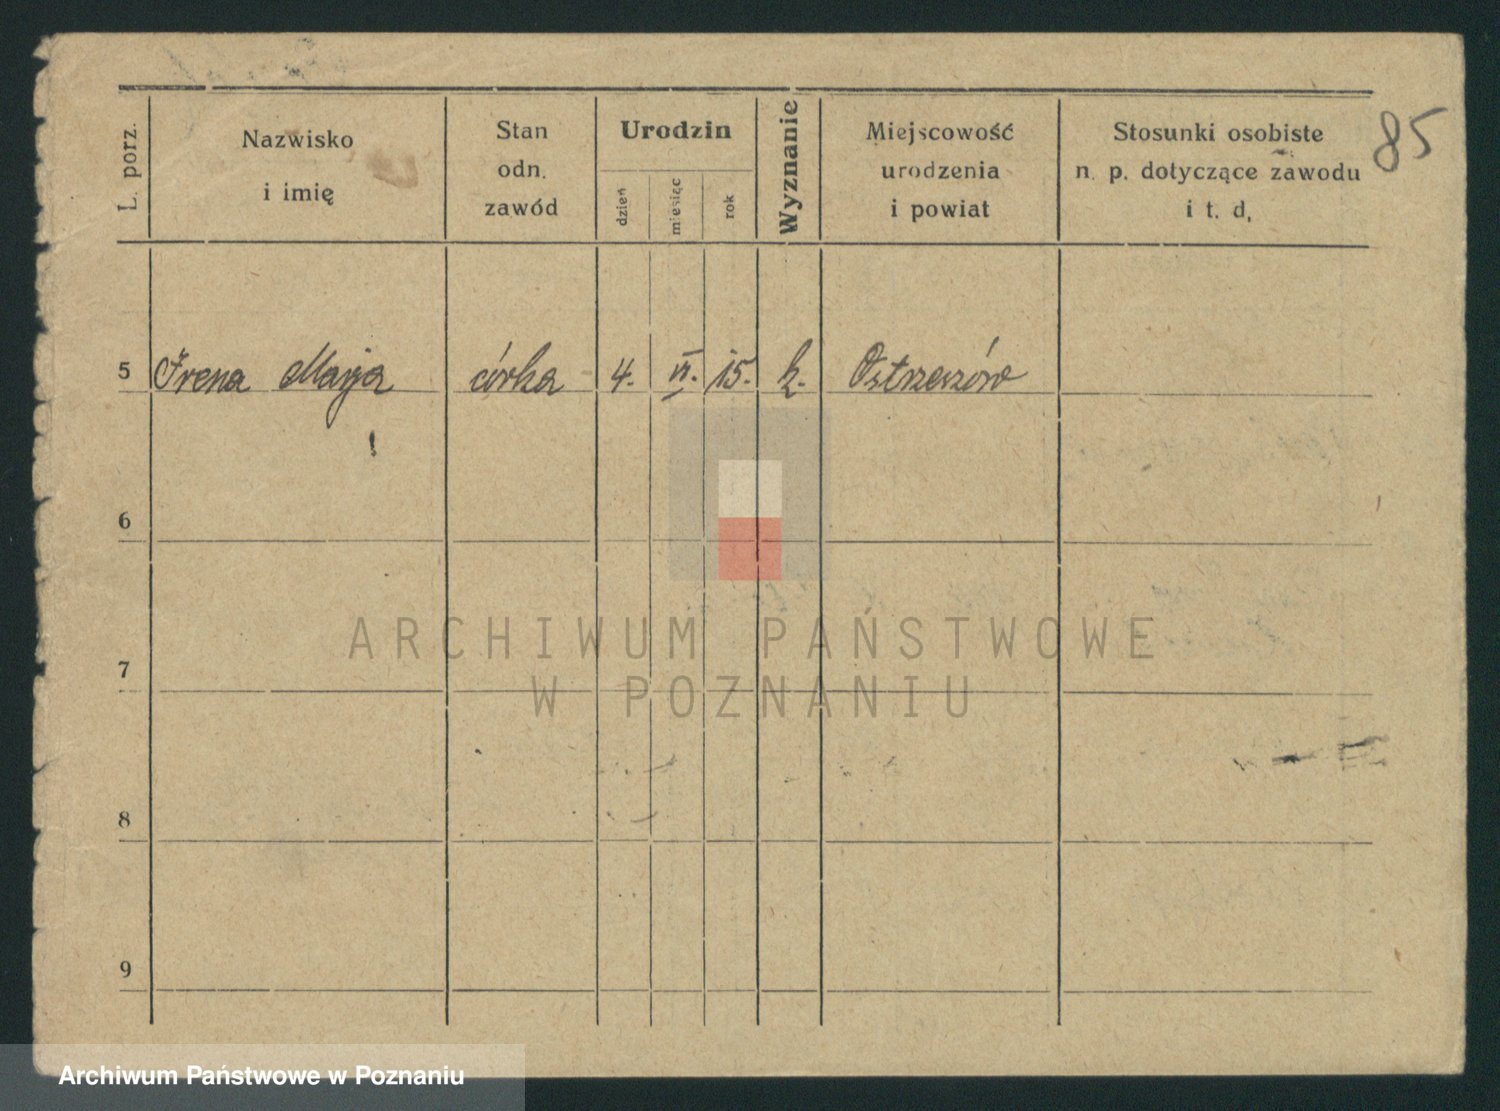 85
L. porz.
Nazwisko
i imię
Stan
odn.
zawód
Urodzin
dzień
miesiąc
rok
Wyznanie
Miejscowość
urodzenia
i powiat
Stosunki osobiste
n. p. dotyczące zawodu
i t. d,
5 Irena Marja córka 4. VI. 15. k. Ostrzeszów
6
7
8
9
ARCHIWUM PAŃSTWOWE
W POZNANIU
Archiwum Państwowe w Poznaniu